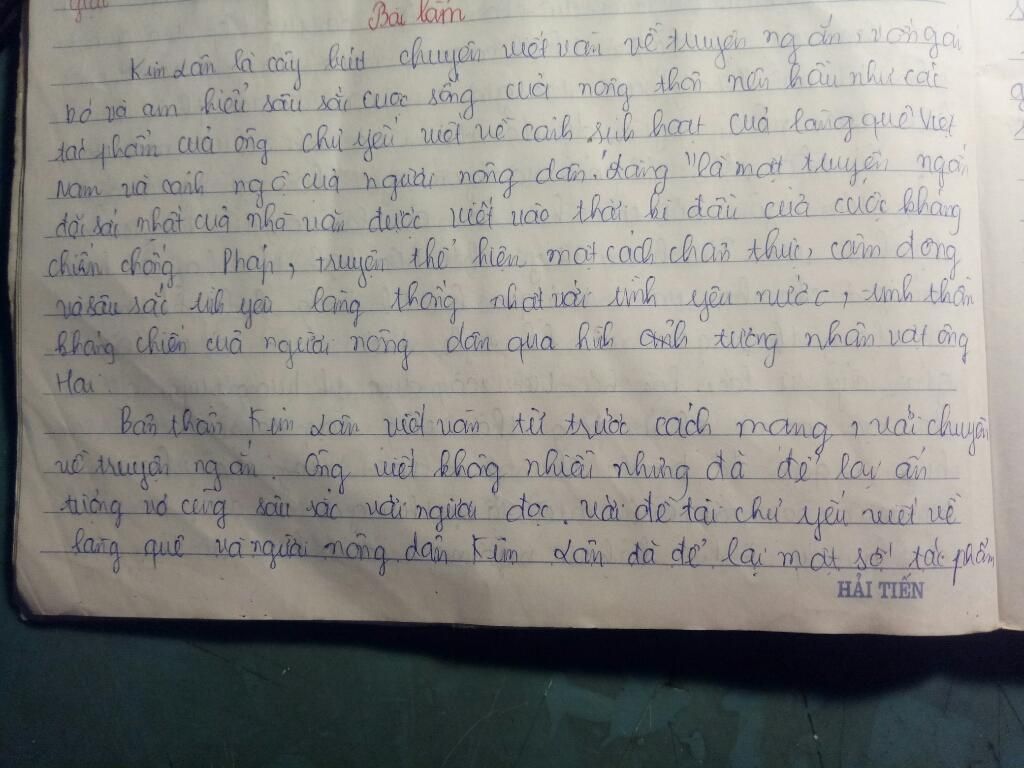 Bài làm
Kim Lân là cây bút chuyên viết văn về truyện ngắn, vốn gắn
bó và am hiểu sâu sắc cuộc sống của nông thôn nên hầu như các
tác phẩm của ông chủ yếu viết về cảnh sinh hoạt của làng quê Việt
Nam và cảnh ngộ của người nông dân. "Làng" là một truyện ngắn
đặc sắc nhất của nhà văn được viết vào thời kì đầu của cuộc kháng
chiến chống Pháp, truyện thể hiện một cách chân thực, cảm động
và sâu sắc tình yêu làng thống nhất với tình yêu nước, tinh thần
kháng chiến của người nông dân qua hình ảnh tượng nhân vật ông
Hai
Bản thân Kim Lân viết văn từ trước cách mạng, với chuyên
về truyện ngắn. Ông viết không nhiều nhưng đã để lại ấn
tượng vô cùng sâu sắc với người đọc. với đề tài chủ yếu viết về
làng quê và người nông dân Kim Lân đã để lại một số tác phẩm
HẢI TIẾN